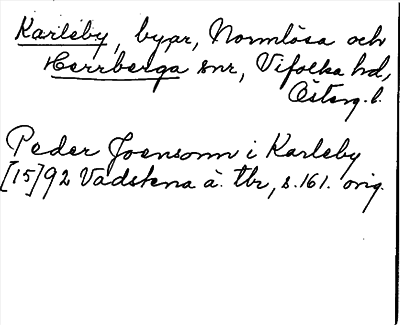 Karleby, bypr, Normlösa och
Herrberga snr, Vifolka hd,
Österg. l.
Peder Joensonn i Karleby
[15]92 Vadstena ä. tbr, s. 161. orig.